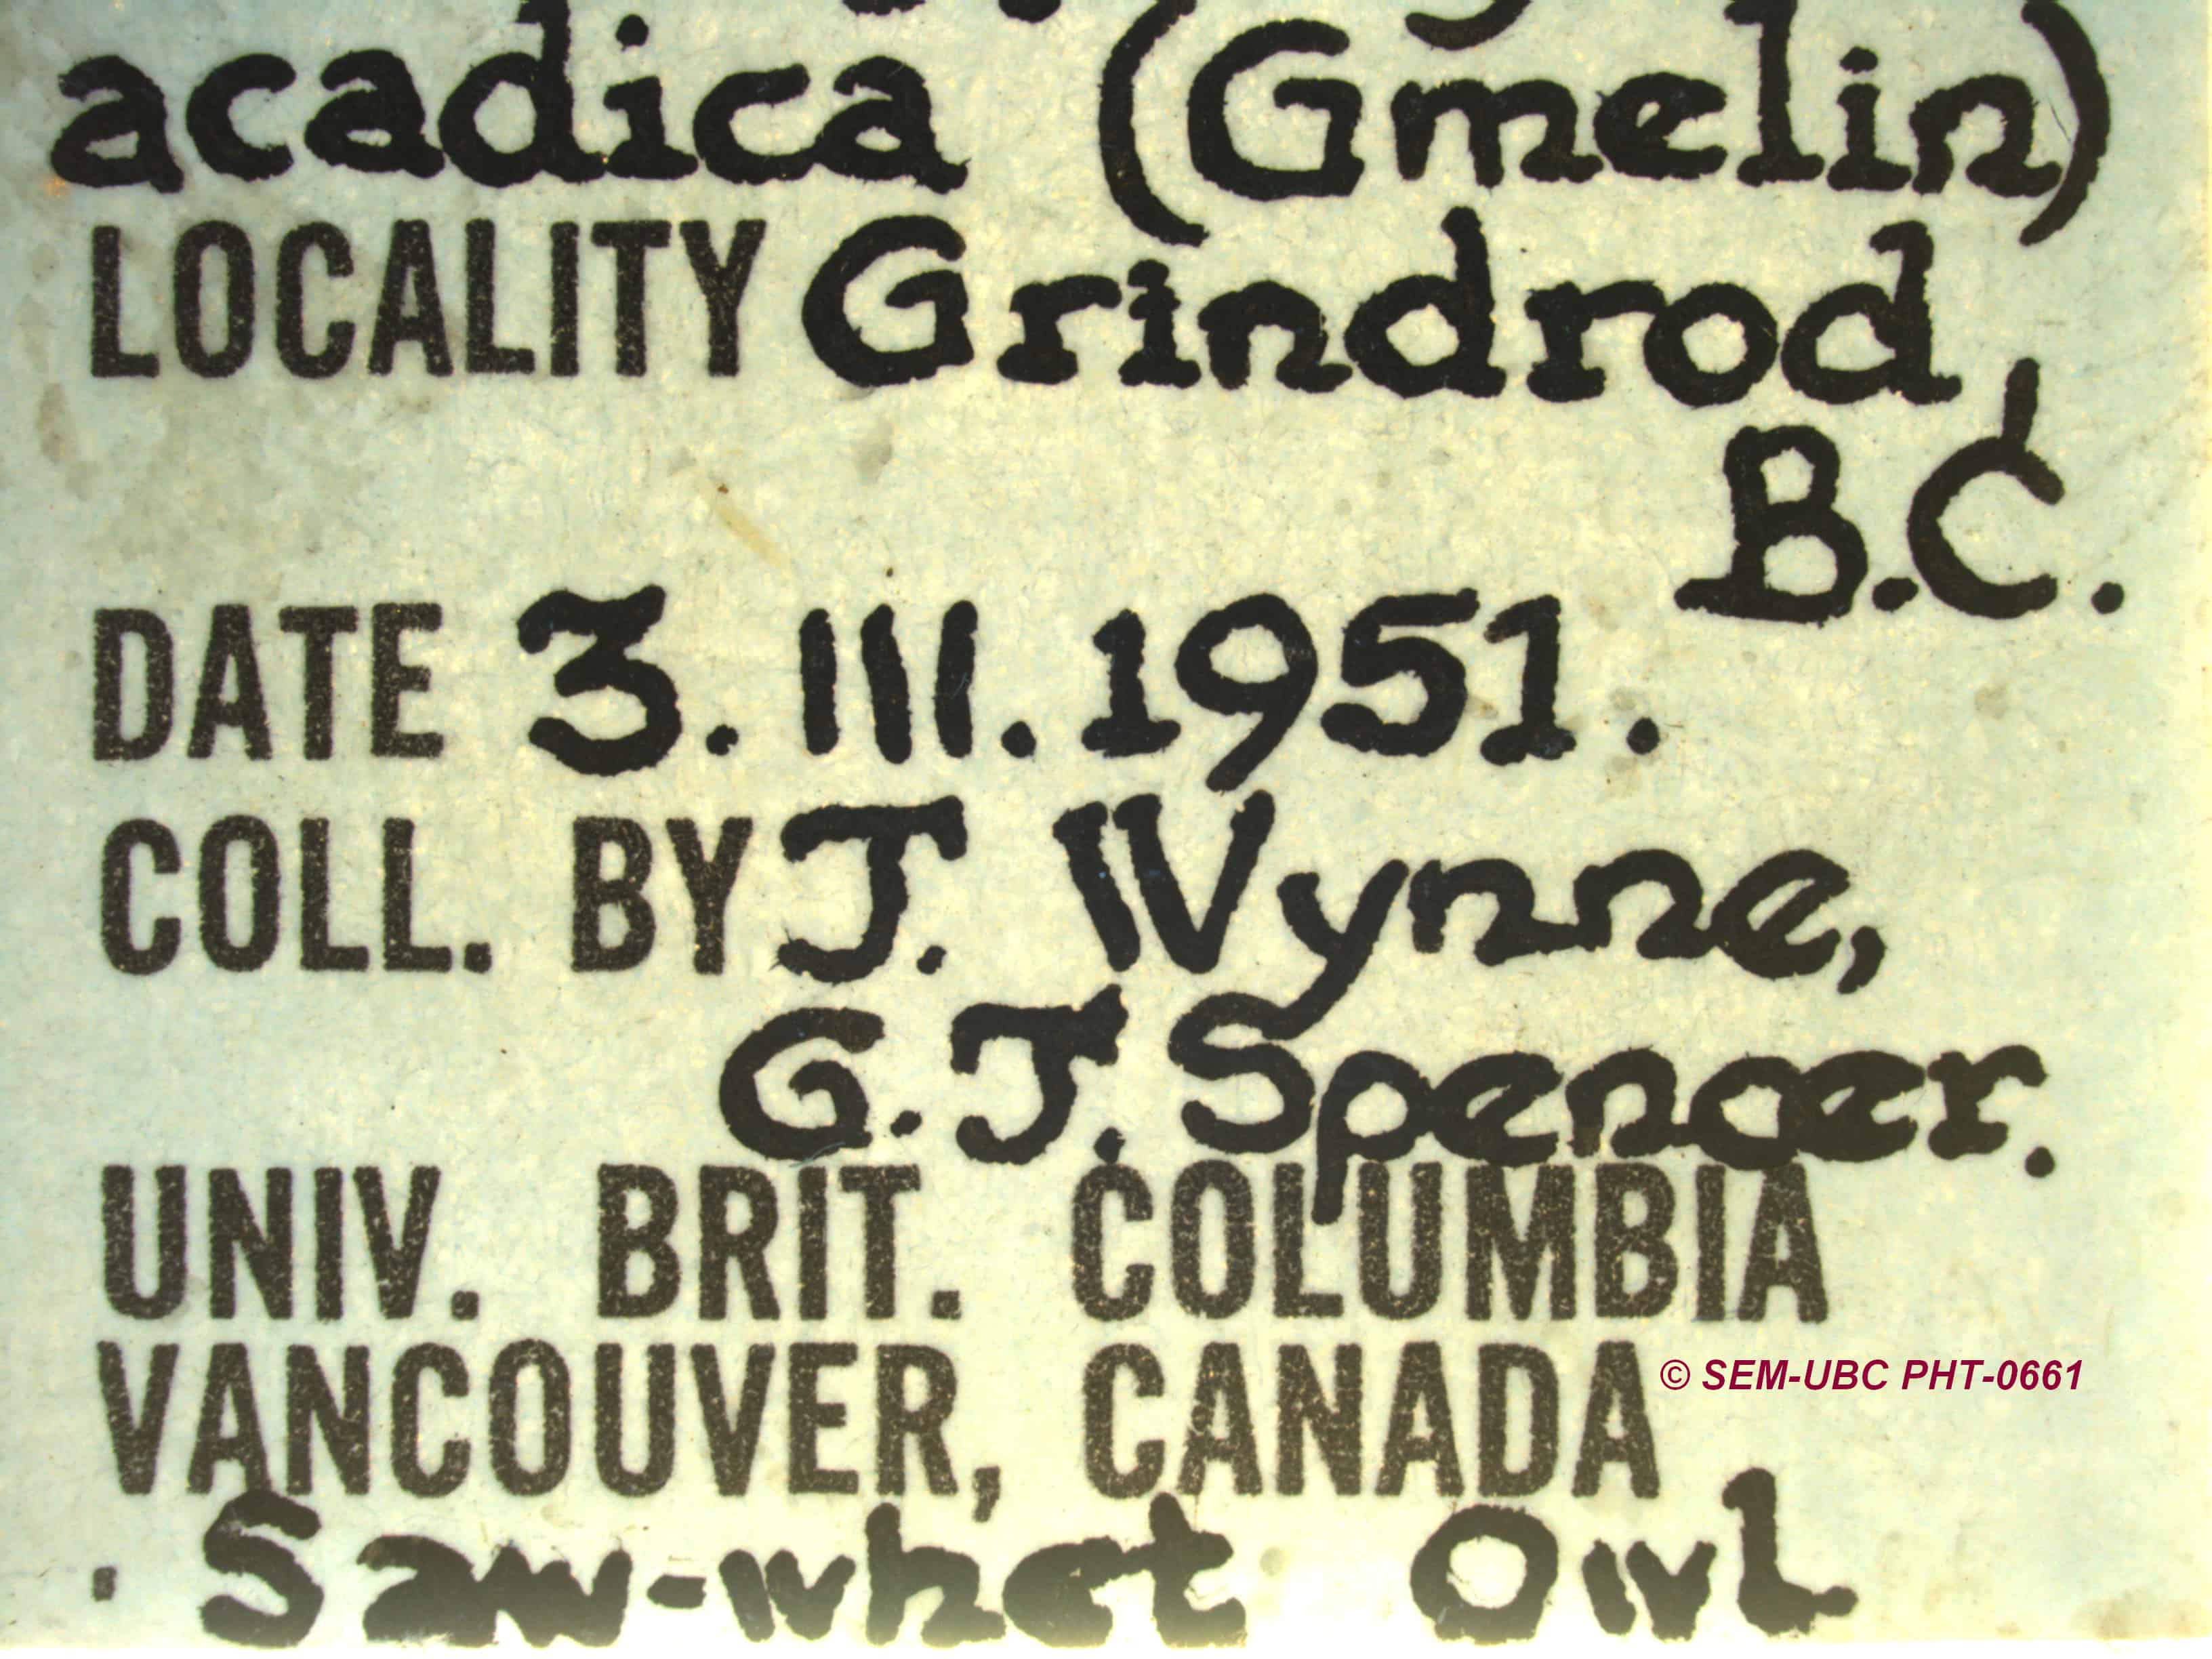 acadica (Gmelin)
LOCALITY Grindrod,
B.C.
DATE 3. III. 1951.
COLL. BY J. Wynne,
G. J. Spencer.
UNIV. BRIT. COLUMBIA
VANCOUVER, CANADA
© SEM-UBC PHT-0661
Saw-whet Owl